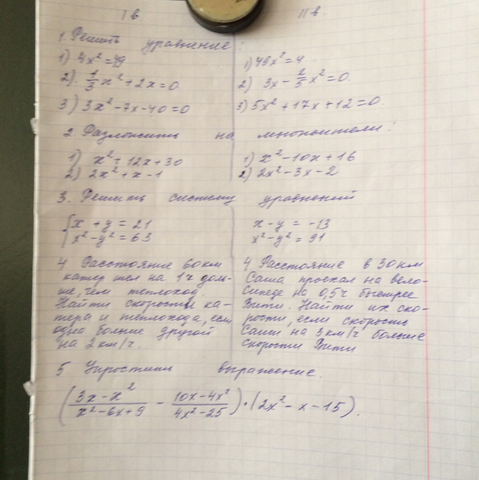 I в II в.
1. Решить уравнение:
1) 4x² = 49 1) 49x² = 4
2) 1/3 x² + 2x = 0 2) 3x - 2/5 x² = 0
3) 3x² - 7x - 40 = 0 3) 5x² + 17x + 12 = 0
2 Разложить на множители:
1) x² - 12x + 30 1) x² - 10x + 16
2) 2x² + x - 1 2) 2x² - 3x - 2
3. Решить систему уравнений
{ x + y = 21 x - y = -13
x² - y² = 63 x² - y² = 91
4 Расстояние 60 км
катер шел на 1 ч доль-
ше, чем теплоход.
Найти скорость ка-
тера и теплохода, если
одна больше другой
на 2 км/ч.
4 Расстояние в 30 км
Саша проехал на вело-
сипеде на 0,5 ч быстрее
Вити. Найти их ско-
рости, если скорость
Саши на 3 км/ч больше
скорости Вити
5 Упростить выражение.
( (3x - x²)/(x² - 6x + 9) - (10x - 4x²)/(4x² - 25) ) · (2x² - x - 15).